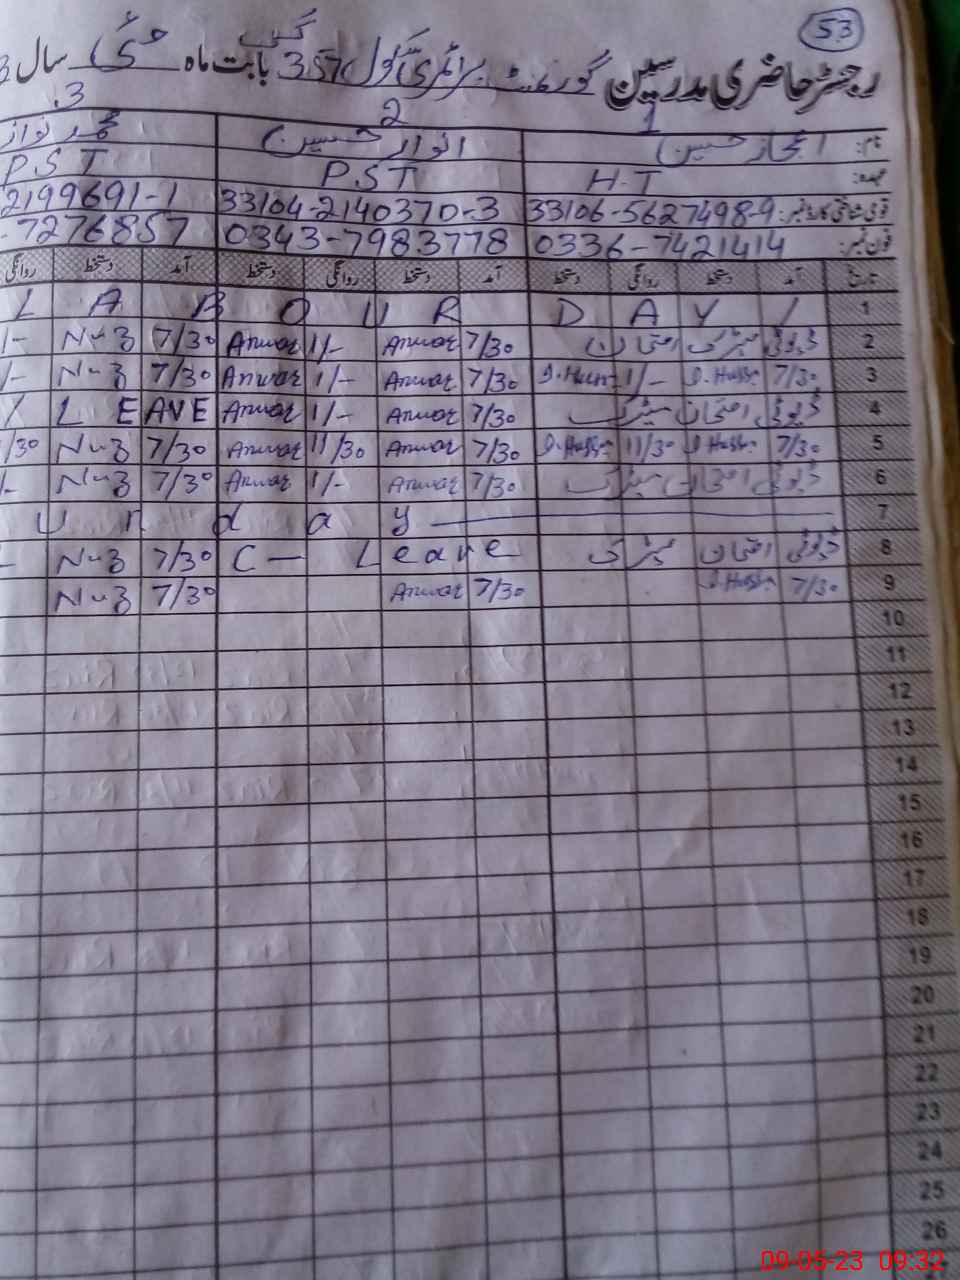 53
رجسٹر حاضری مدرسین گورنمنٹ پرائمری سکول 357 گ ب بابت ماہ مئی سال 3
1 2 3
نام: اعجاز حسین انوار حسین محمد نواز
عہدہ: H.T PST PST
قومی شناختی کارڈ نمبر: 33106-5627498-9 33104-2140370-3 2199691-1
فون نمبر: 0336-7421414 0343-7983778 -7276857
تاریخ آمد دستخط روانگی دستخط آمد دستخط روانگی دستخط آمد دستخط روانگی
L A B O U R D A Y 1
2 ڈیوٹی میٹرک امتحان 7/30 Anwar 1/- Anwar 7/30 N-z /-
3 7/30 1/- 7/30 Anwar 1/- Anwar 7/30 N-z /-
4 ڈیوٹی امتحان میٹرک 7/30 Anwar 1/- Anwar LEAVE
5 7/30 11/30 7/30 Anwar 11/30 Anwar 7/30 N-z /30
6 ڈیوٹی امتحان میٹرک 7/30 Anwar 1/- Anwar 7/30 N-z /-
u n d a y 7
8 ڈیوٹی امتحان میٹرک C- Leave 7/30 N-z -
9 7/30 7/30 Anwar 7/30 N-z
10
11
12
13
14
15
16
17
18
19
20
21
22
23
24
25
26
09-05-23 09:32